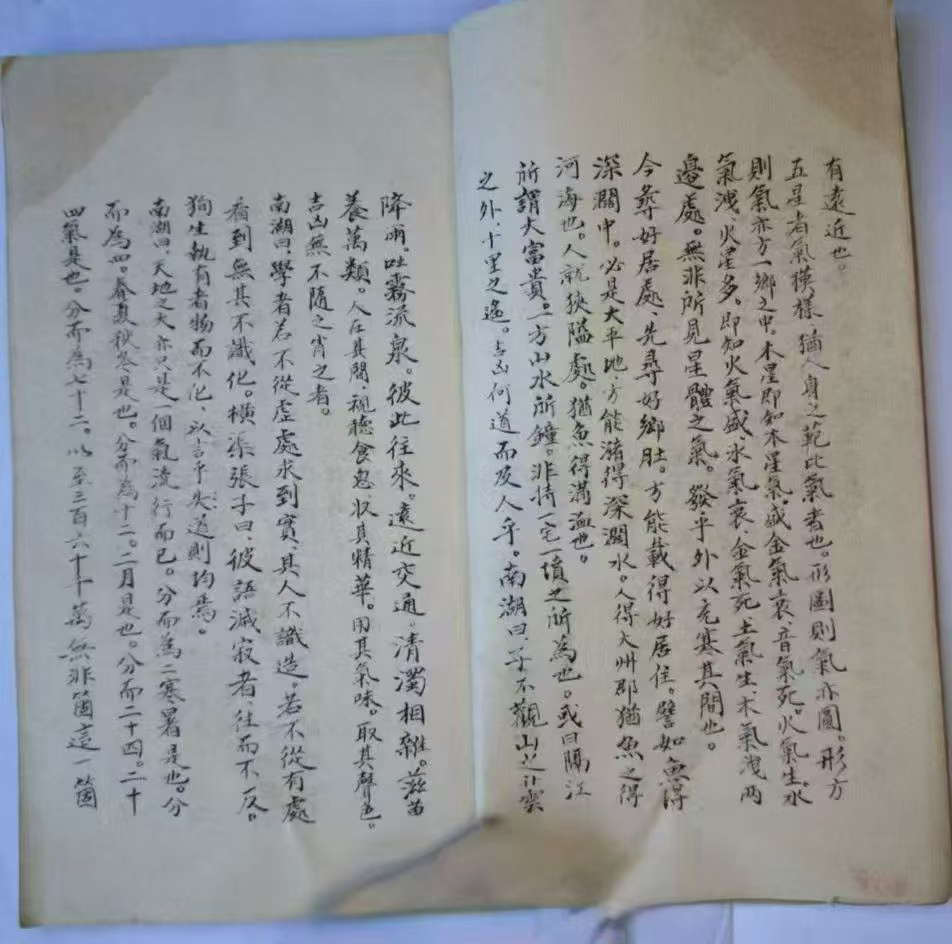 有遠近也。
五星者氣模樣、猶人身之範比氣者也。形圓則氣亦圓。形方
則氣亦方一鄉之中。木星即知木星氣。盛金氣衰、音氣死。火氣生、水
氣洩。火星多。即知火氣盛、水氣衰、金氣死土氣生、木氣洩兩
邊處。無非所見星體之氣。發乎外以充塞其間也。
今尋好居處、先尋好鄉肚。方能載得好居住。譬如魚得
深濶中。必是大平地、方能瀦得深濶水。人得大州郡猶魚之得
河海也。人就狹隘處。猶魚得溝洫也。
所謂大富貴。一方山水所鐘。非恃一宅一墳之所為也。或曰隔江
之外、十里之遙。吉凶何道而及人乎。南湖曰、子不觀山川雲
降雨。吐霧流泉。彼此往來。遠近交通。清濁相雜。滋苗
養萬類。人在其間、視聽食息、狀其精華。用其氣味。取其聲色。
吉凶無不隨之肖之者。
南湖曰、學者若不從虛處求到實、其人不識造。若不從有處
看到無其不識化。橫渠張子曰、彼語滅寂者、往而不反。
狥生執有者物而不化、以言乎失道則均焉。
南湖曰、天地之大亦只是一個氣流行而已。分而為二寒暑是也。分
而為四。春夏秋冬是也。分而為十二。二月是也。分而二十四。二十
四氣是也。分而為七十二。以至三百六十十萬無非箇這一箇